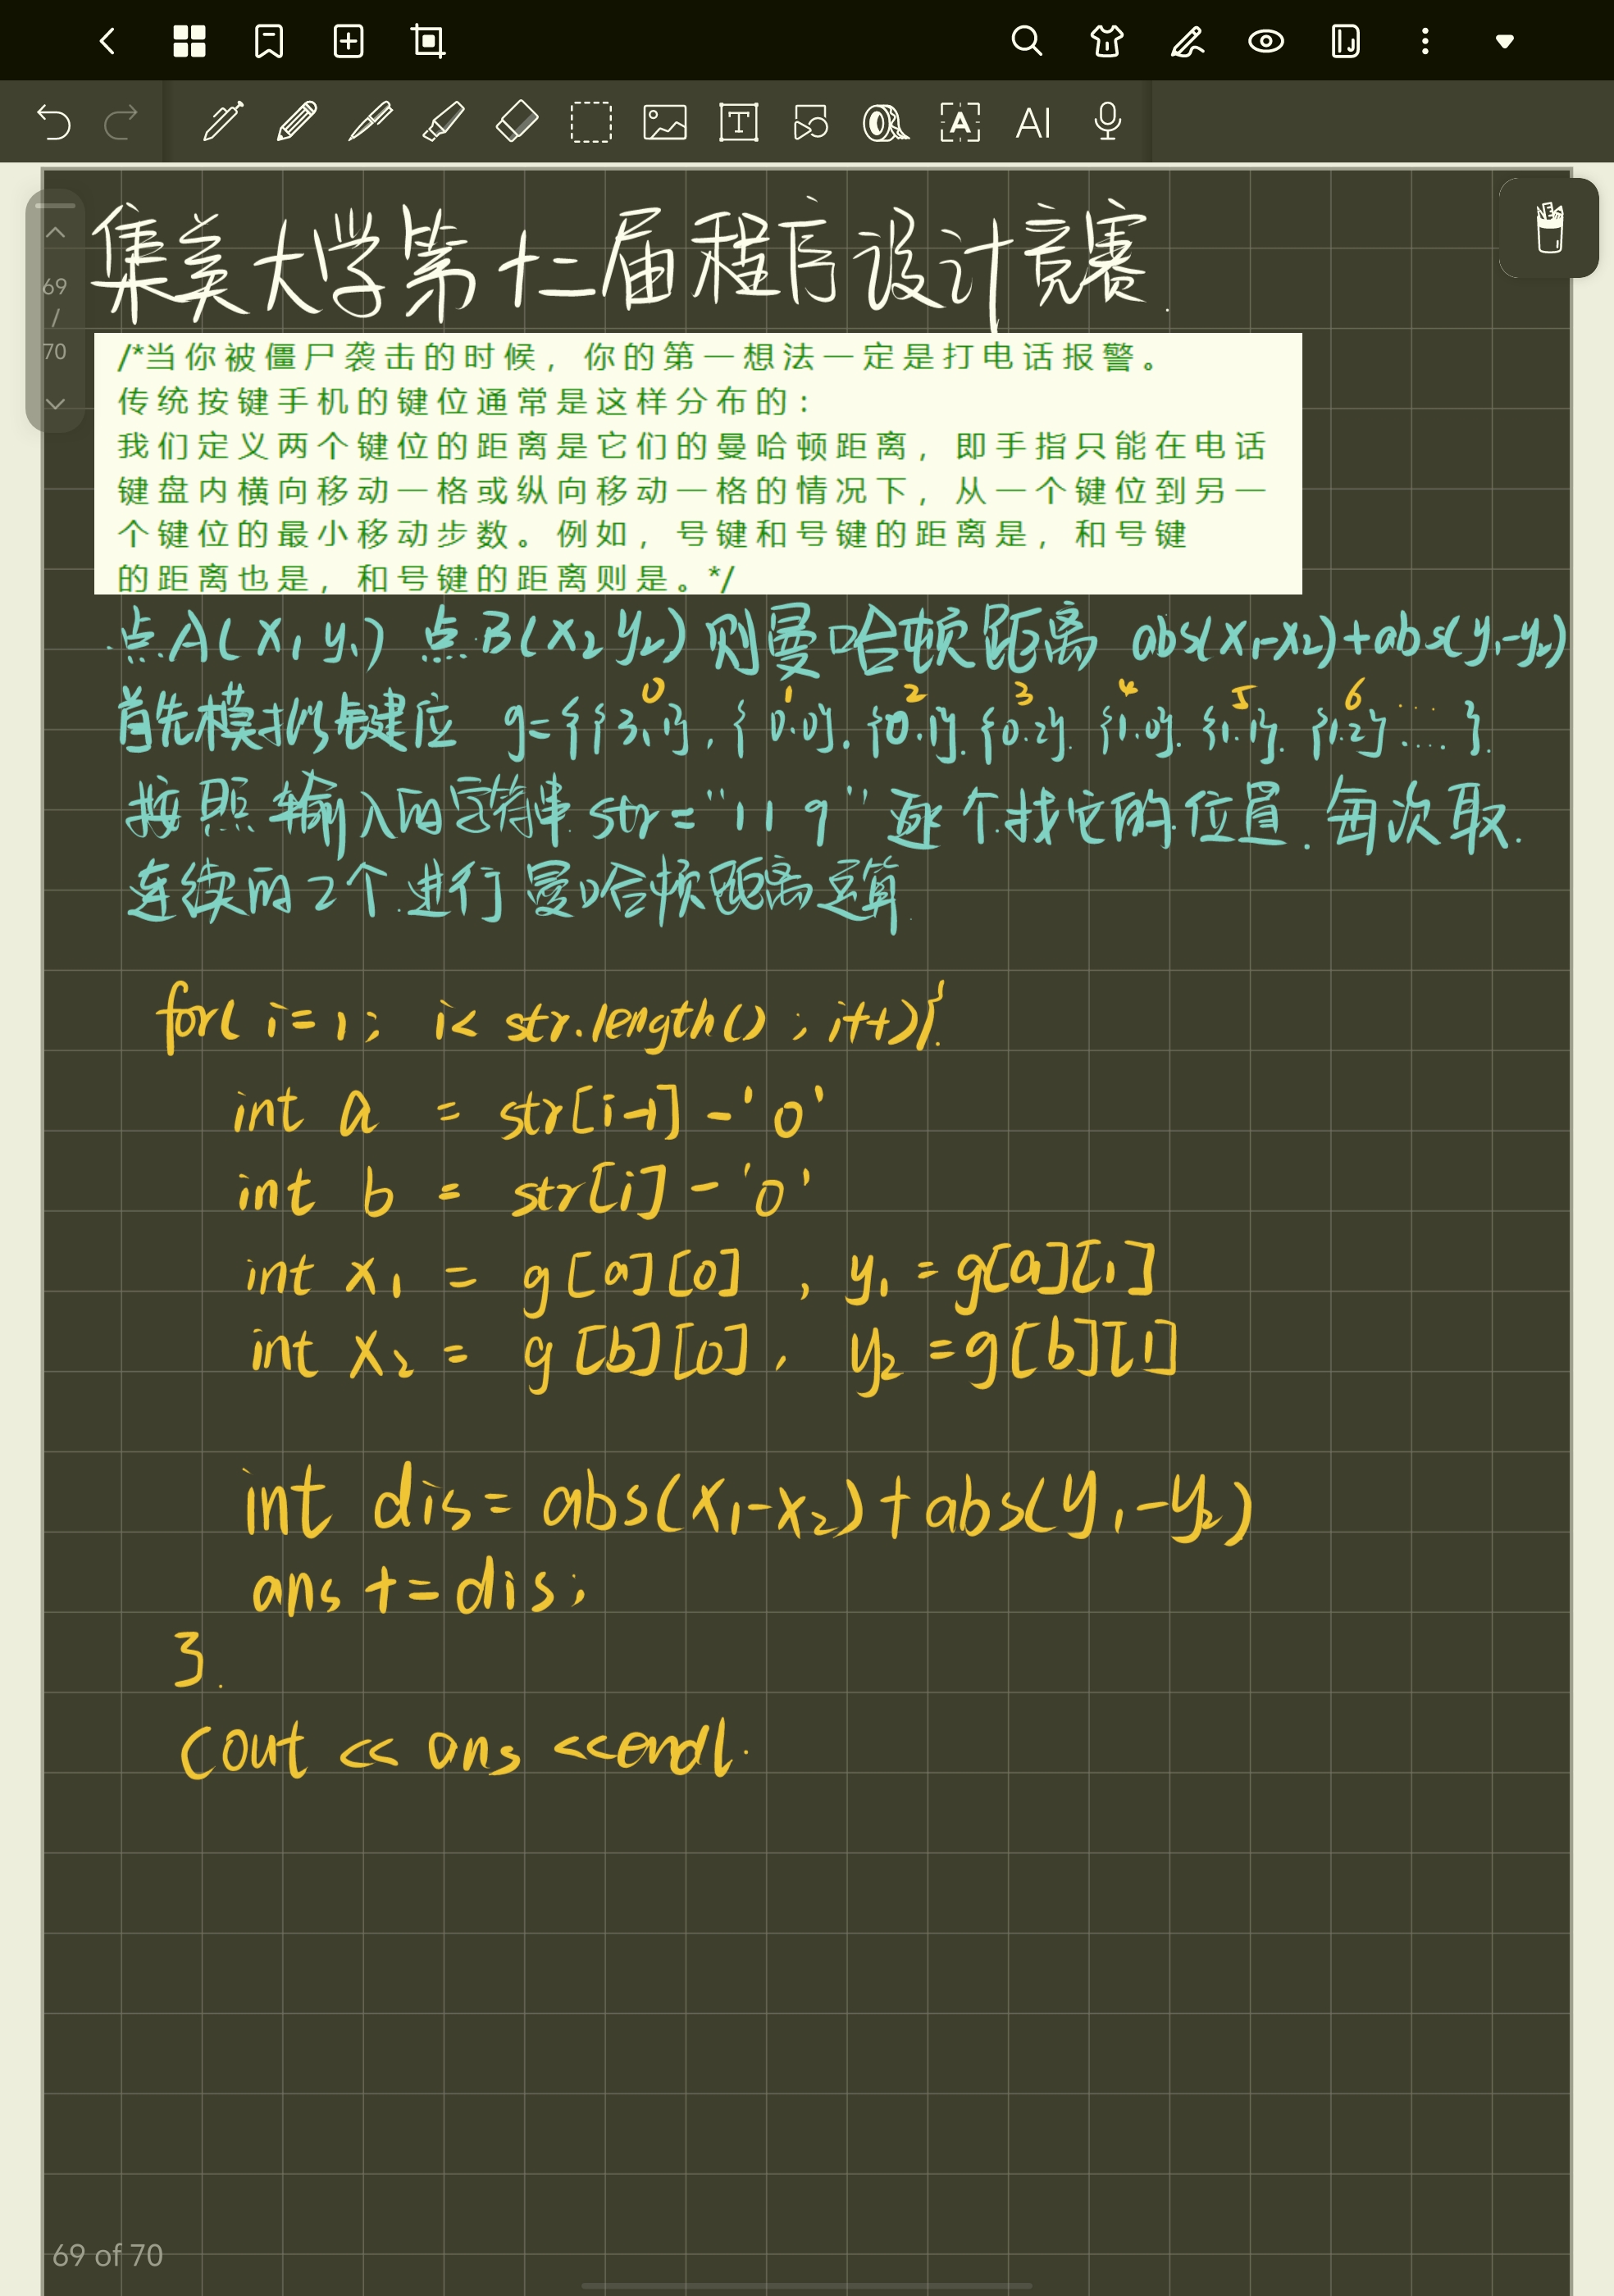 69
/
70
集美大学第十二届程序设计竞赛.
/*当你被僵尸袭击的时候，你的第一想法一定是打电话报警。
传统按键手机的键位通常是这样分布的：
我们定义两个键位的距离是它们的曼哈顿距离，即手指只能在电话
键盘内横向移动一格或纵向移动一格的情况下，从一个键位到另一
个键位的最小移动步数。例如，号键和号键的距离是，和号键
的距离也是，和号键的距离则是。*/
点A(x₁ y₁) 点B(x₂ y₂) 则曼哈顿距离 abs(x₁-x₂)+abs(y₁-y₂)
0 1 2 3 4 5 6 ....
首先模拟键位 g={{3.1},{0.0},{0.1}.{0.2}.{1.0}.{1.1}.{1.2}....}.
按照输入的字符串 str="119"逐个找它的位置.每次取.
连续的2个进行曼哈顿距离运算
for( i=1; i< str.length() ; i++){
int a = str[i-1] -'0'
int b = str[i] -'0'
int x₁ = g[a][0] , y₁ = g[a][1]
int x₂ = g[b][0] , y₂ = g[b][1]
int dis= abs(x₁-x₂)+abs(y₁-y₂)
ans += dis;
}.
cout << ans <<endl.
69 of 70